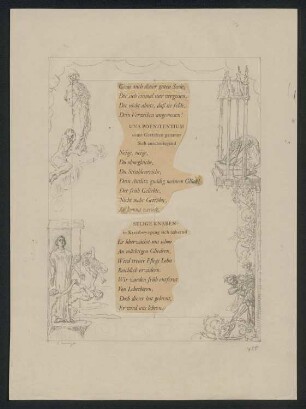 Gönn auch dieser guten Seele,
Die sich einmal nur vergessen,
Die nicht ahnte, daß sie fehle,
Dein Verzeihen angemessen!
UNA POENITENTIUM
sonst Gretchen genannt
Sich anschmiegend
Neige, neige,
Du Ohnegleiche,
Du Strahlenreiche,
Dein Antlitz gnädig meinem Glück!
Der früh Geliebte,
Nicht mehr Getrübte,
Er kommt zurück.
SELIGE KNABEN
in Kreisbewegung sich nähernd
Er überwächst uns schon
An mächtigen Gliedern,
Wird treuer Pflege Lohn
Reichlich erwidern.
Wir wurden früh entfernt
Von Lebechören;
Doch dieser hat gelernt,
Er wird uns lehren.